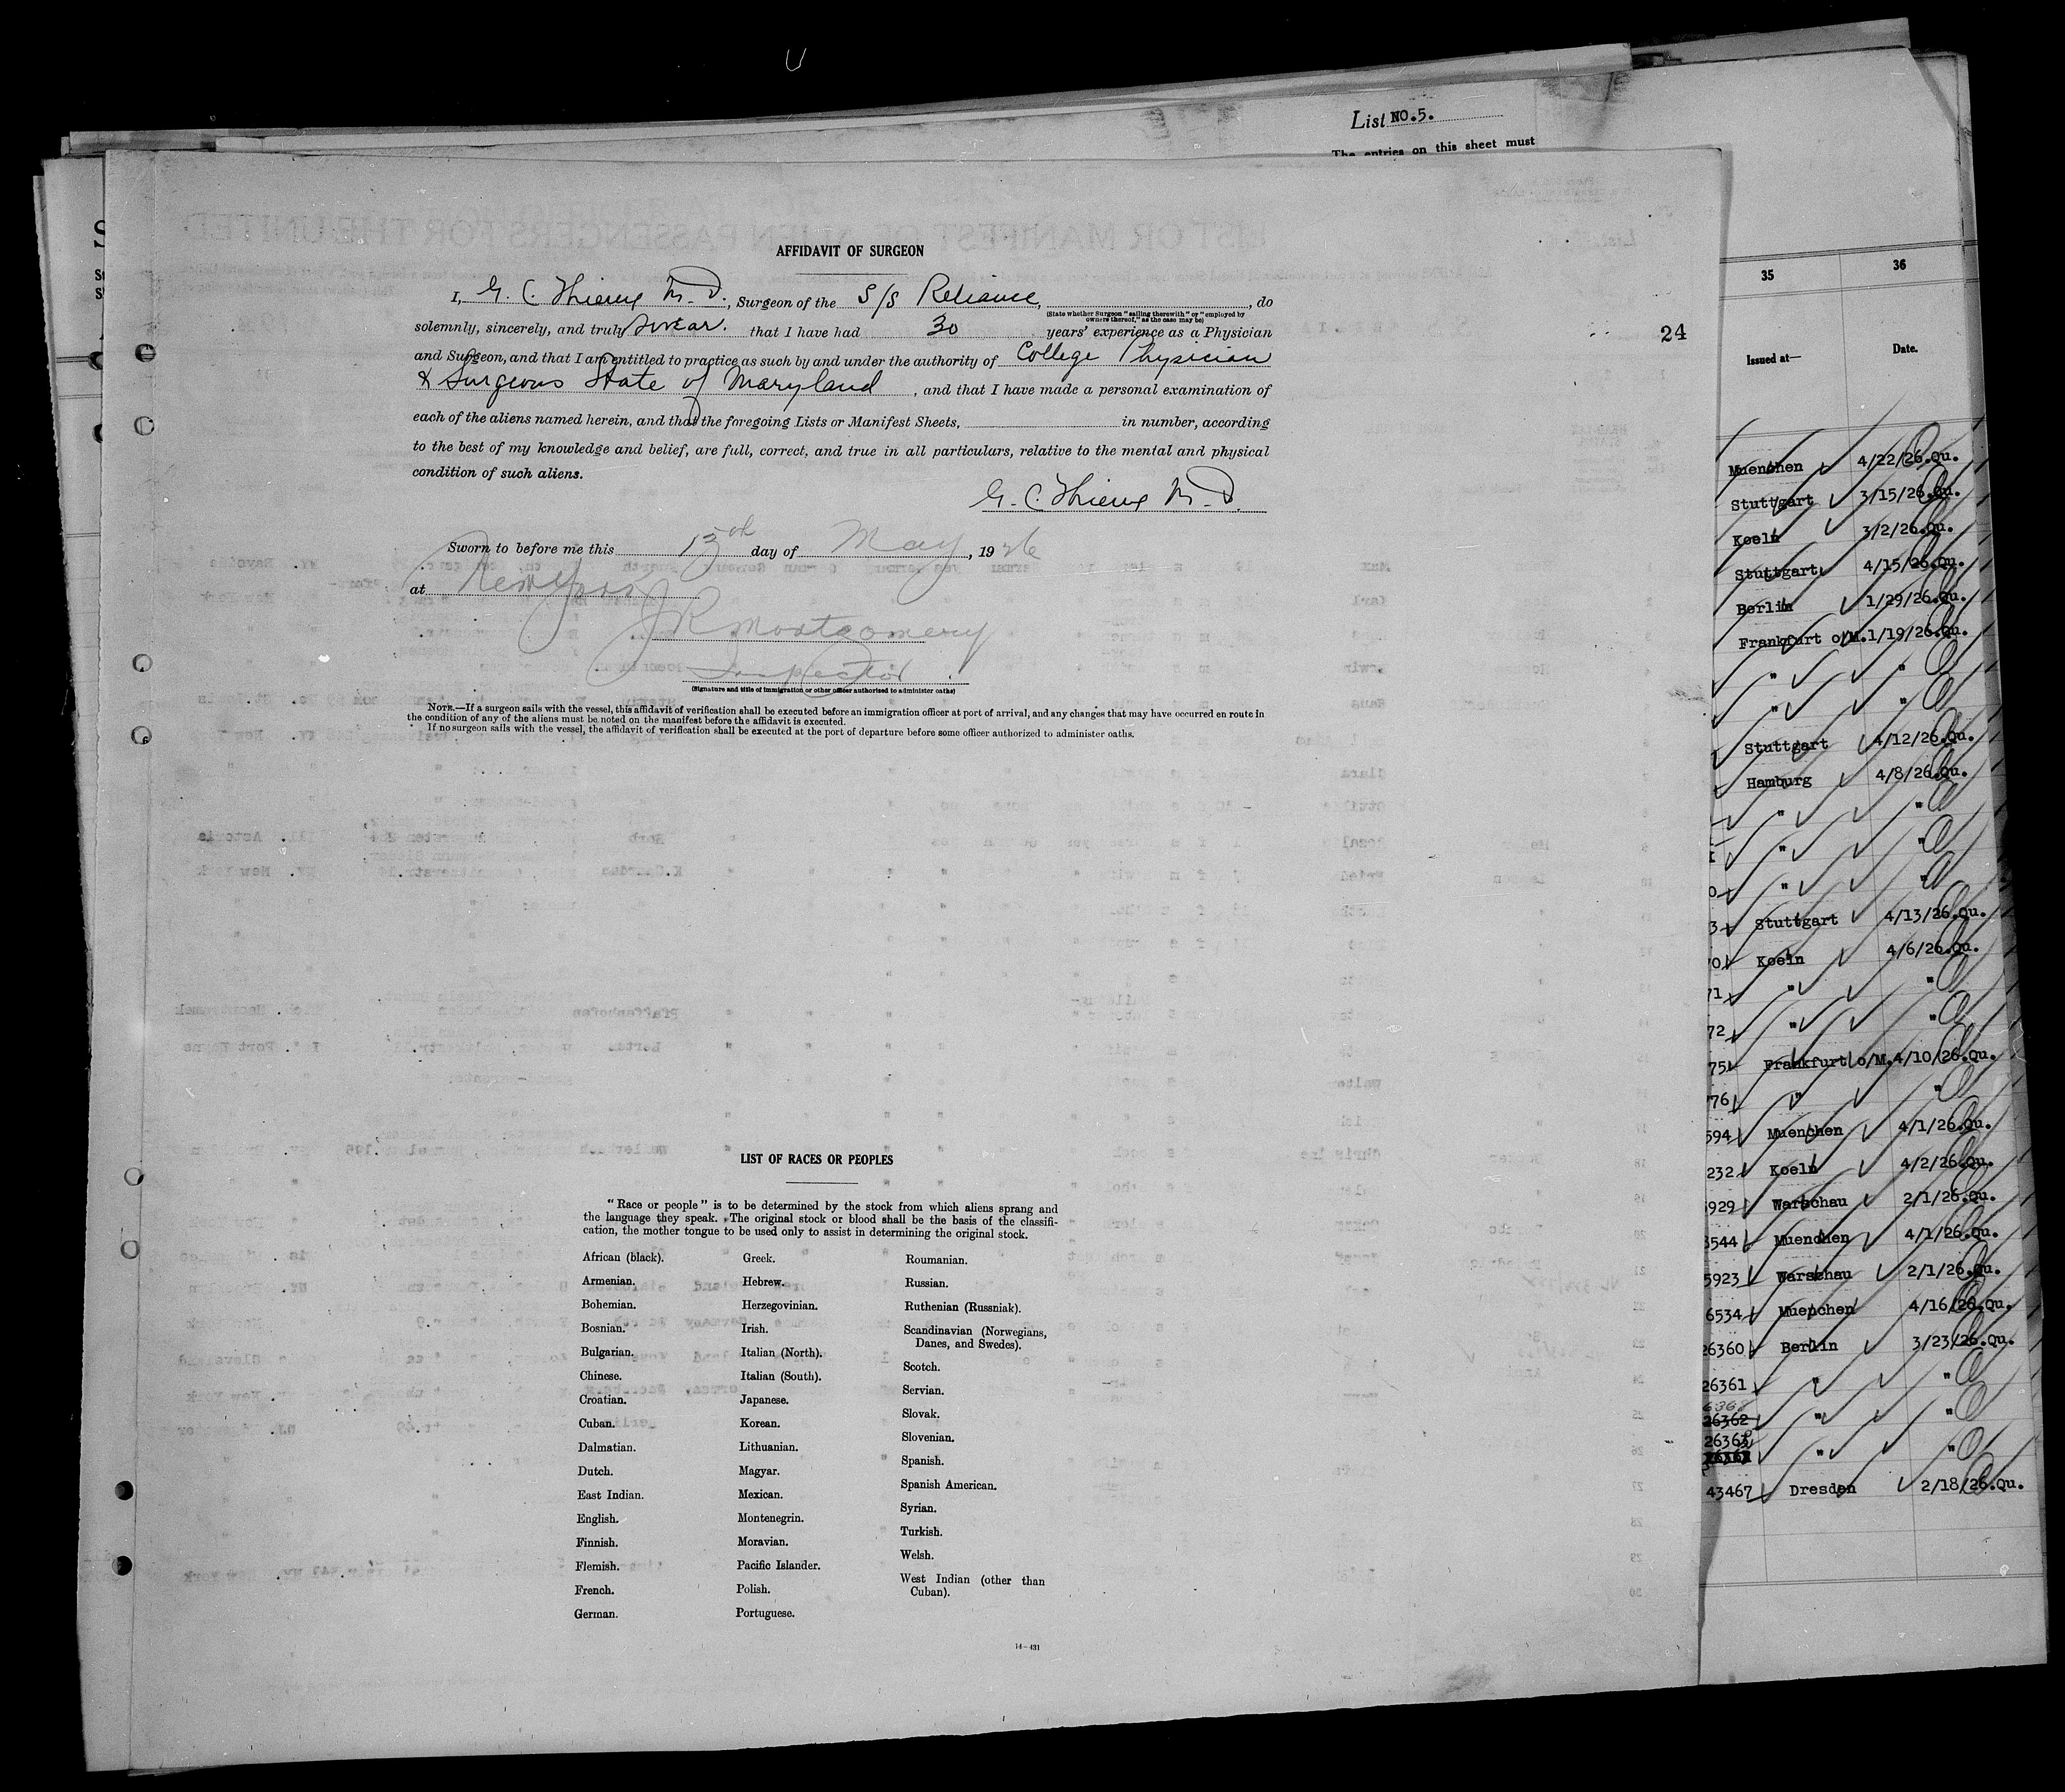 List NO.5.
The entries on this sheet must
24
AFFIDAVIT OF SURGEON
I, G. C. M. D., Surgeon of the S/S Reliance, , do
(State whether Surgeon "sailing therewith" or "employed by owners thereof," as the case may be)
solemnly, sincerely, and truly swear. that I have had 30 years' experience as a Physician
and Surgeon, and that I am entitled to practice as such by and under the authority of College Physician
& Surgeons State of Maryland , and that I have made a personal examination of
each of the aliens named herein, and that the foregoing Lists or Manifest Sheets, in number, according
to the best of my knowledge and belief, are full, correct, and true in all particulars, relative to the mental and physical
condition of such aliens.
G. C. M. D.
Sworn to before me this day of May, 1926
at New York
J R Montgomery
Inspector
(Signature and title of immigration or other officer authorized to administer oaths)
NOTE.—If a surgeon sails with the vessel, this affidavit of verification shall be executed before an immigration officer at port of arrival, and any changes that may have occurred en route in
the condition of any of the aliens must be noted on the manifest before the affidavit is executed.
If no surgeon sails with the vessel, the affidavit of verification shall be executed at the port of departure before some officer authorized to administer oaths.
LIST OF RACES OR PEOPLES
"Race or people" is to be determined by the stock from which aliens sprang and
the language they speak. The original stock or blood shall be the basis of the classifi-
cation, the mother tongue to be used only to assist in determining the original stock.
African (black).
Armenian.
Bohemian.
Bosnian.
Bulgarian.
Chinese.
Croatian.
Cuban.
Dalmatian.
Dutch.
East Indian.
English.
Finnish.
Flemish.
French.
German.
Greek.
Hebrew.
Herzegovinian.
Irish.
Italian (North).
Italian (South).
Japanese.
Korean.
Lithuanian.
Magyar.
Mexican.
Montenegrin.
Moravian.
Pacific Islander.
Polish.
Portuguese.
Roumanian.
Russian.
Ruthenian (Russniak).
Scandinavian (Norwegians,
Danes, and Swedes).
Scotch.
Servian.
Slovak.
Slovenian.
Spanish.
Spanish American.
Syrian.
Turkish.
Welsh.
West Indian (other than
Cuban).
14—431
35 36
Issued at— Date.
Muenchen 4/22/26.Qu.
Stuttgart 3/15/26.Qu.
Koeln 3/2/26.Qu.
Stuttgart 4/15/26.Qu.
Berlin 1/29/26.Qu.
Frankfurt o/M. 1/19/26.Qu.
" "
" "
Stuttgart 4/12/26.Qu.
Hamburg 4/8/26.Qu.
" "
" "
0 " "
3 Stuttgart 4/13/26.Qu.
70 Koeln 4/6/26.Qu.
71 " "
72 " "
75 Frankfurt o/M. 4/10/26.Qu.
76 " "
594 Muenchen 4/1/26.Qu.
232 Koeln 4/2/26.Qu.
5929 Warschau 2/1/26.Qu.
3544 Muenchen 4/1/26.Qu.
5923 Warschau 2/1/26.Qu.
6534 Muenchen 4/16/26.Qu.
26360 Berlin 3/23/26.Qu.
26361 " "
26362 " "
26363 " "
43467 Dresden 2/18/26.Qu.